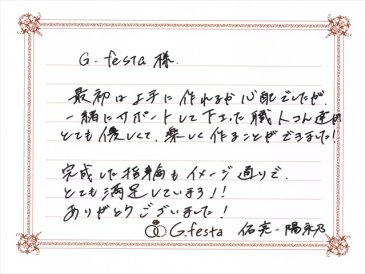 G.festa 様
最初は上手に作れるか心配でしたが
一緒にサポートして下さった職人さん達が
とても優しくて、楽しく作ることができました!
完成した指輪もイメージ通りで、
とても満足しています!!
ありがとうございました!
G.festa